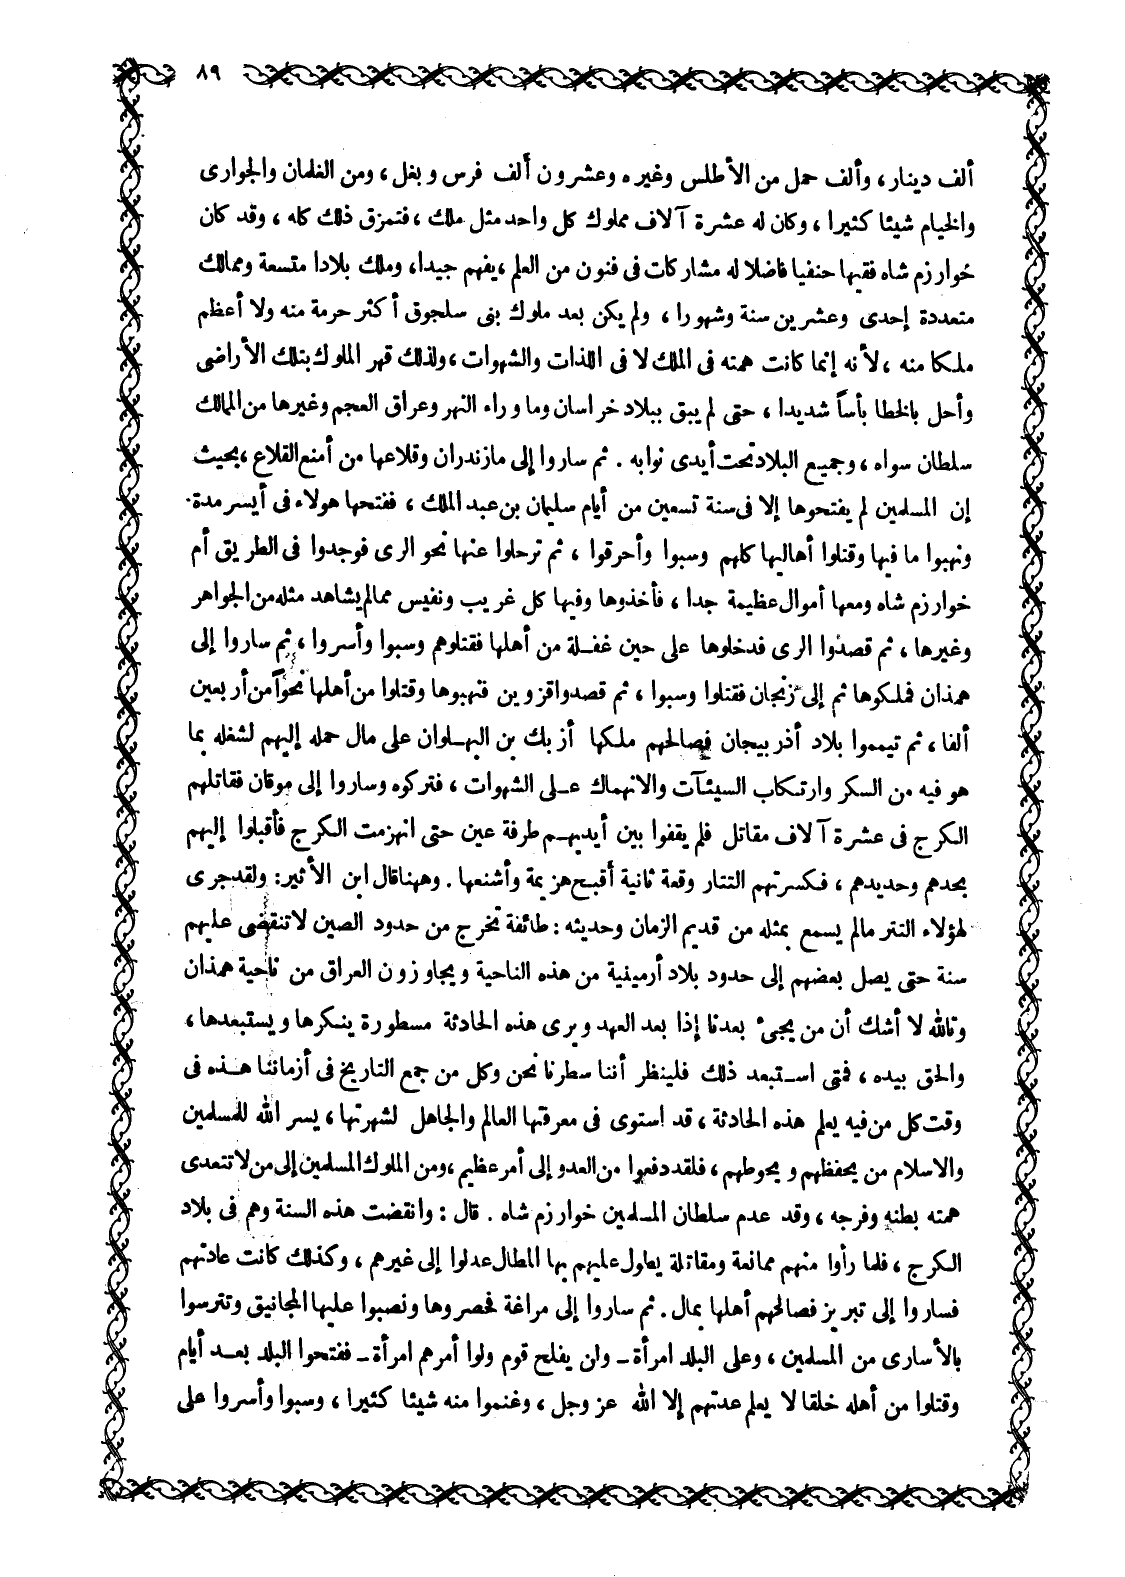 ٨٩
ألف دينار، وألف حمل من الأطلس وغيره وعشرون ألف فرس وبغل، ومن الغلمان والجوارى
والخيام شيئا كثيرا، وكان له عشرة آلاف مملوك كل واحد مثل ملك، فتمزق ذلك كله، وقد كان
خوارزم شاه فقيها حنفيا فاضلا له مشاركات فى فنون من العلم، يفهم جيدا، وملك بلادا متسعة وممالك
متعددة إحدى وعشرين سنة وشهورا، ولم يكن بعد ملوك بنى سلجوق أكثر حرمة منه ولا أعظم
ملكا منه، لأنه إنما كانت همته فى الملك لا فى اللذات والشهوات، ولذلك قهر الملوك بتلك الأراضى
وأحل بالخطا بأساً شديدا، حتى لم يبق ببلاد خراسان وما وراء النهر وعراق العجم وغيرها من الممالك
سلطان سواه، وجميع البلاد تحت أيدى نوابه. ثم ساروا إلى مازندران وقلاعها من أمنع القلاع، بحيث
إن المسلمين لم يفتحوها إلا فى سنة تسعين من أيام سليمان بن عبد الملك، ففتحها هولاء فى أيسر مدة
ونهبوا ما فيها وقتلوا أهاليها كلهم وسبوا وأحرقوا، ثم ترحلوا عنها نحو الرى فوجدوا فى الطريق أم
خوارزم شاه ومعها أموال عظيمة جدا، فأخذوها وفيها كل غريب ونفيس مما لم يشاهد مثله من الجواهر
وغيرها، ثم قصدوا الرى فدخلوها على حين غفلة من أهلها فقتلوهم وسبوا وأسروا، ثم ساروا إلى
همذان فملكوها ثم إلى زنجان فقتلوا وسبوا، ثم قصدوا قزوين فنهبوها وقتلوا من أهلها نحواً من أربعين
ألفا، ثم تيمموا بلاد أذربيجان فصالحهم ملكها أزبك بن البهلوان على مال حمله إليهم لشغله بما
هو فيه من السكر وارتكاب السيئآت والانهماك على الشهوات، فتركوه وساروا إلى موقان فقاتلهم
الكرج فى عشرة آلاف مقاتل فلم يقفوا بين أيديهم طرفة عين حتى انهزمت الكرج فأقبلوا إليهم
بحدهم وحديدهم، فكسرتهم التتار وقعة ثانية أقبح هزيمة وأشنعها. وههنا قال ابن الأثير: ولقد جرى
لهؤلاء التتر مالم يسمع بمثله من قديم الزمان وحديثه: طائفة تخرج من حدود الصين لا تنقضى عليهم
سنة حتى يصل بعضهم إلى حدود بلاد أرمينية من هذه الناحية ويجاوزون العراق من ناحية همذان
وتالله لا أشك أن من يجئ بعدنا إذا بعد العهد ويرى هذه الحادثة مسطورة ينكرها ويستبعدها،
والحق بيده، فمتى استبعد ذلك فلينظر أننا سطرنا نحن وكل من جمع التاريخ فى أزماننا هذه فى
وقت كل من فيه يعلم هذه الحادثة، قد استوى فى معرفتها العالم والجاهل لشهرتها، يسر الله للمسلمين
والاسلام من يحفظهم ويحوطهم، فلقد دفعوا من العدو إلى أمر عظيم، ومن الملوك المسلمين إلى من لا تتعدى
همته بطنه وفرجه، وقد عدم سلطان المسلمين خوارزم شاه. قال: وانقضت هذه السنة وهم فى بلاد
الكرج، فلما رأوا منهم ممانعة ومقاتلة يطول عليهم بها المطال عدلوا إلى غيرهم، وكذلك كانت عادتهم
فساروا إلى تبريز فصالحهم أهلها بمال. ثم ساروا إلى مراغة فحصروها ونصبوا عليها المجانيق وتترسوا
بالأسارى من المسلمين، وعلى البلد امرأة ـ ولن يفلح قوم ولوا أمرهم امرأة ـ ففتحوا البلد بعد أيام
وقتلوا من أهله خلقا لا يعلم عدتهم إلا الله عز وجل، وغنموا منه شيئا كثيرا، وسبوا وأسروا على